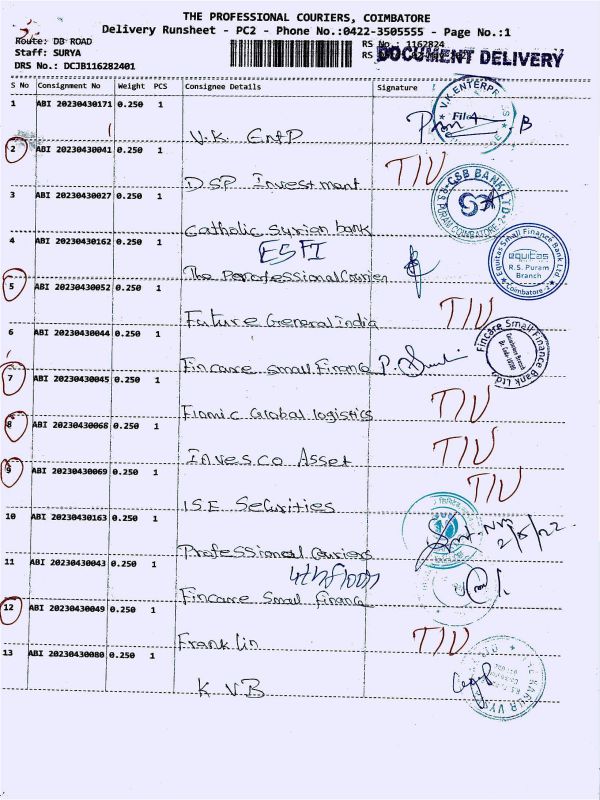 THE PROFESSIONAL COURIERS, COIMBATORE
Delivery Runsheet - PC2 - Phone No.:0422-3505555 - Page No.:1
Route: DB ROAD
RS No.: 1162824
Staff: SURYA
RS
DOCUMENT DELIVERY
DRS No.: DCJB116282401
S No Consignment No Weight PCS Consignee Details Signature
1 ABI 20230430171 0.250 1
V.K. Entp
V.K. ENTERPRISES
2 ABI 20230430041 0.250 1
DSP Investment
TIU
3 ABI 20230430027 0.250 1
Catholic Syrian bank
CSB BANK LTD
R.S. PURAM COIMBATORE-2
4 ABI 20230430162 0.250 1
ESFI
The Porofessional Courier
Equitas Small Finance Bank Ltd
equitas
R.S. Puram
Branch
Coimbatore
5 ABI 20230430052 0.250 1
Future General india
TIU
6 ABI 20230430044 0.250 1
Fincare small Finance
Fincare Small Finance Bank Ltd.
7 ABI 20230430045 0.250 1
Fiomic Global logistics
TIU
8 ABI 20230430068 0.250 1
Invesco Asset
TIU
9 ABI 20230430069 0.250 1
ISE Securities
TIU
10 ABI 20230430163 0.250 1
Professional Couriers
11 ABI 20230430043 0.250 1
4th floor
Fincare Small finance
12 ABI 20230430049 0.250 1
Franklin
TIU
13 ABI 20230430080 0.250 1
K V B